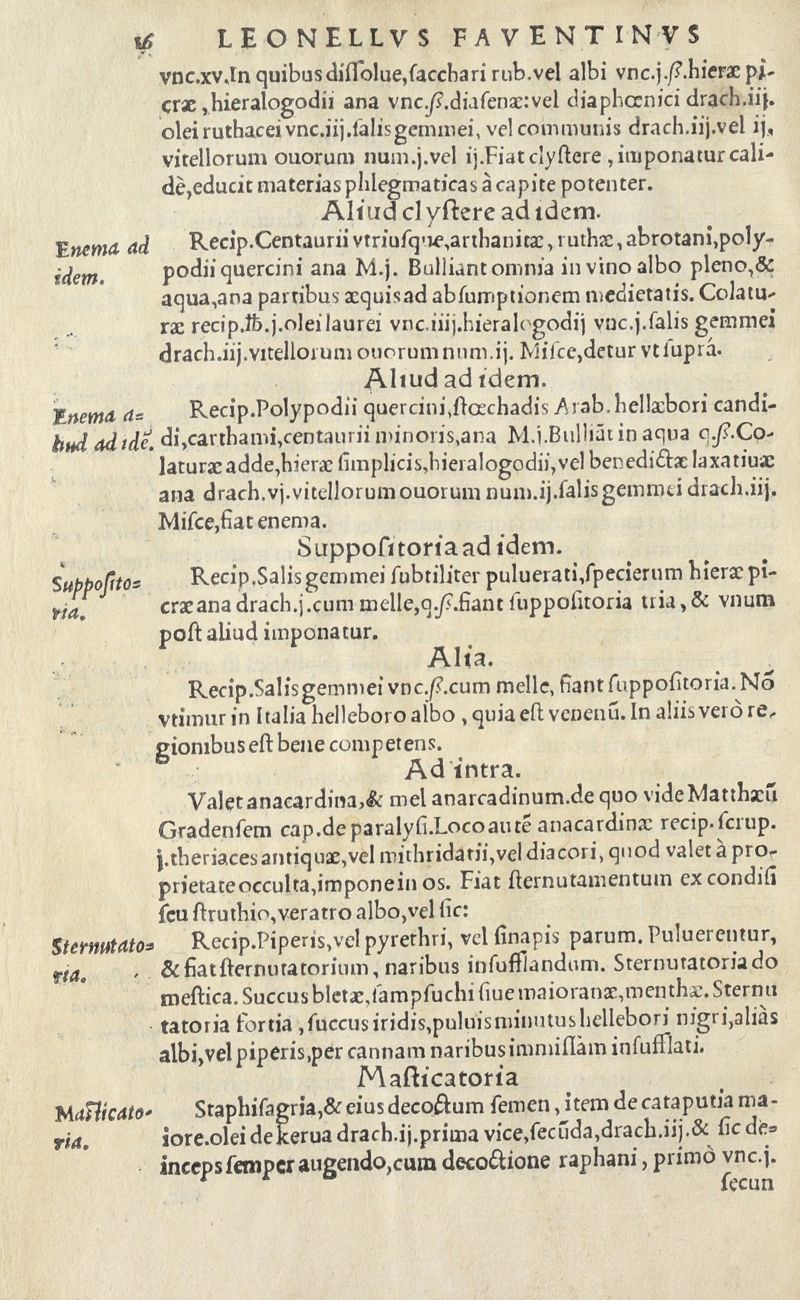 16 LEONELLVS FAVENTINVS
vnc.xv.In quibus dissolue,sacchari rub.vel albi vnc.j.ß.hieræ pi-
cræ, hieralogodii ana vnc.ß.diasenæ:vel diaphœnici drach.iij.
olei ruthacei vnc.iij.salis gemmei, vel communis drach.iij.vel ij,
vitellorum ouorum num.j.vel ij.Fiat clystere, imponatur cali-
dè,educit materias phlegmaticas à capite potenter.
Aliud clystere ad idem.
Enema ad
idem.
Recip.Centaurii vtriusque,arthanitæ, ruthæ, abrotani,poly-
podii quercini ana M.j. Bulliant omnia in vino albo pleno,&
aqua,ana partibus æquis ad absumptionem medietatis. Colatu-
ræ recip.℔.j.olei laurei vnc.iiij.hieralogodij vnc.j.salis gemmei
drach.iij.vitellorum ouorum num.ij. Misce,detur vt suprá.
Aliud ad idem.
Enema a=
liud ad idē.
Recip.Polypodii quercini,stœchadis Arab. hellæbori candi-
di,carthami,centaurii minoris,ana M.j.Bulliāt in aqua q.ß.Co-
laturæ adde,hieræ simplicis,hieralogodii,vel benedictæ laxatiuæ
ana drach.vj.vitellorum ouorum num.ij.salis gemmei drach.iij.
Misce,fiat enema.
Suppositoria ad idem.
Supposito=
ria.
Recip.Salis gemmei subtiliter puluerati,specierum hieræ pi-
cræ ana drach.j.cum melle,q.ß.fiant suppositoria tria, & vnum
post aliud imponatur.
Alia.
Recip.Salis gemmei vnc.ß.cum melle, fiant suppositoria. Nō
vtimur in Italia helleboro albo, quia est venenū. In aliis verò re-
gionibus est bene competens.
Ad intra.
Valet anacardina,& mel anarcadinum.de quo vide Matthæū
Gradensem cap.de paralysi.Loco autē anacardinæ recip.scrup.
j.theriaces antiquæ,vel mithridatii,vel diacori, quod valet à pro-
prietate occulta,impone in os. Fiat sternutamentum ex condisi
seu struthio,veratro albo,vel sic:
Sternutato=
ria.
Recip.Piperis,vel pyrethri, vel sinapis parum. Puluerentur,
& fiat sternutatorium, naribus insufflandum. Sternutatoria do
mestica. Succus bletæ,sampsuchi siue maioranæ,menthæ. Sternu
tatoria fortia, succus iridis,puluis minutus hellebori nigri,aliàs
albi,vel piperis,per cannam naribus immissam insufflati.
Masticatoria
Masticato-
ria.
Staphisagria,& eius decoctum semen, item de cataputia ma-
iore.olei de kerua drach.ij.prima vice,secūda,drach.iij.& sic de=
inceps semper augendo,cum decoctione raphani, primò vnc.j.
secun